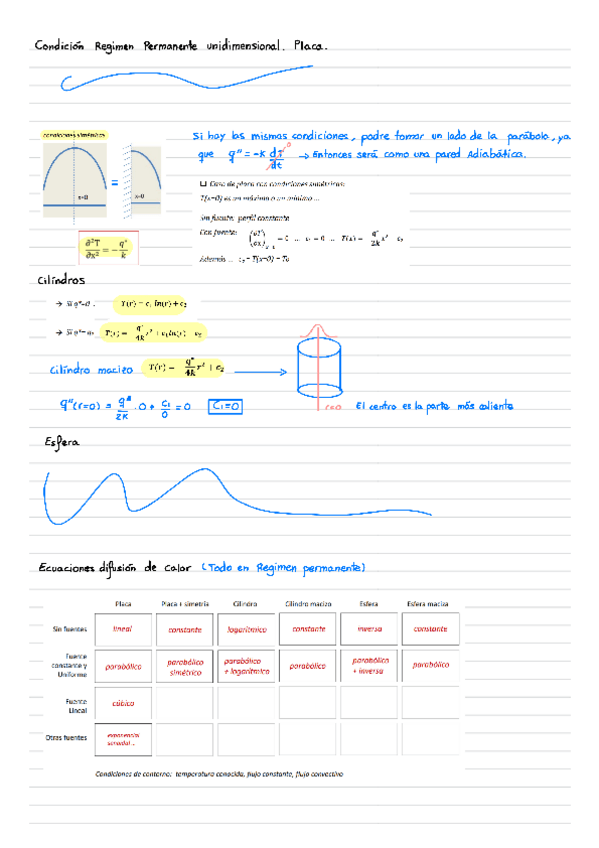 Condición Regimen Permanente unidimensional. Placa.
condiciones simétricas
x=0
=
x=0
∂²T/∂x² = − q*/k
Si hay las mismas condiciones, podre tomar un lado de la parábola, ya
que q" = -K dT/dt → 0 → Entonces será como una pared Adiabática.
❑ Caso de placa con condiciones simétricas:
T(x=0) es un máximo o un mínimo ...
Sin fuente: perfil constante
Con fuente: (∂T/∂x)x=0 = 0 ... c₁ = 0 ... T(x) = − q*/2k x² + c₂
Además ... c₂ = T(x=0) = To
Cilíndros
→ Si q*=0 . T(r) = c₁ ln(r) + c₂
→ Si q*= T(r) = − q*/4k r² + c₁ln(r) + c₂
Cilíndro macizo T(r) = − q*/4k r² + c₂
q"(r=0) = q*/2K · 0 + C₁/0 = 0 C₁=0
r=0 El centro es la parte más caliente
Esfera
Ecuaciones difusión de calor (Todo en Regimen permanente)
Placa Placa + simetría Cilindro Cilindro macizo Esfera Esfera maciza
Sin fuentes lineal constante logarítmico constante inversa constante
Fuente constante y Uniforme parabólico parabólico simétrico parabólico + logarítmico parabólico parabólico + inversa parabólico
Fuente Lineal cúbico
Otras fuentes exponencial senoidal ..
Condiciones de contorno: temperatura conocida, flujo constante, flujo convectivo